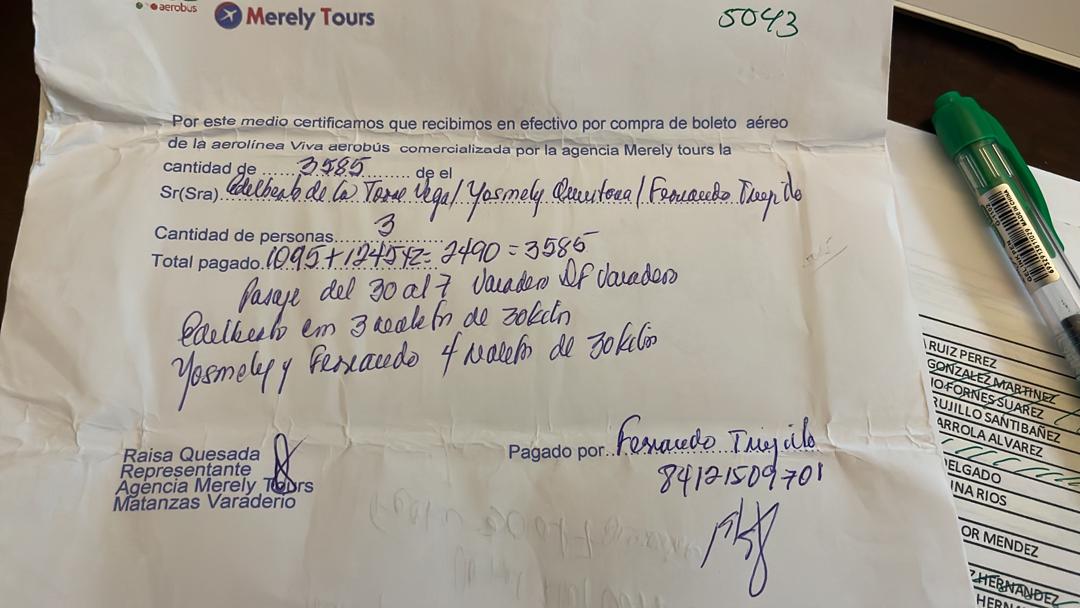 aerobus
Merely Tours
5043
Por este medio certificamos que recibimos en efectivo por compra de boleto aéreo
de la aerolínea Viva aerobús comercializada por la agencia Merely tours la
cantidad de ......3585............ de el
Sr(Sra) Edelberto de la Torre Vega/ Yosmely Quintana/ Fernando Trujillo
Cantidad de personas......3............
Total pagado 1095+1245x2= 2490 = 3585
Pasaje del 30 al 7 Varadero DF Varadero
Edelberto con 3 maletin de 30kilo
Yosmely y Fernando 4 maletin de 30kilo
Raisa Quesada
Representante
Agencia Merely Tours
Matanzas Varaderio
Pagado por Fernando Trujillo
84121509701
RUIZ PEREZ
GONZALEZ MARTINEZ
FORNES SUAREZ
RUJILLO SANTIBAÑEZ
ARROLA ALVAREZ
ELGADO
INA RIOS
OR MENDEZ
HERNANDEZ
MADE IN CHINA